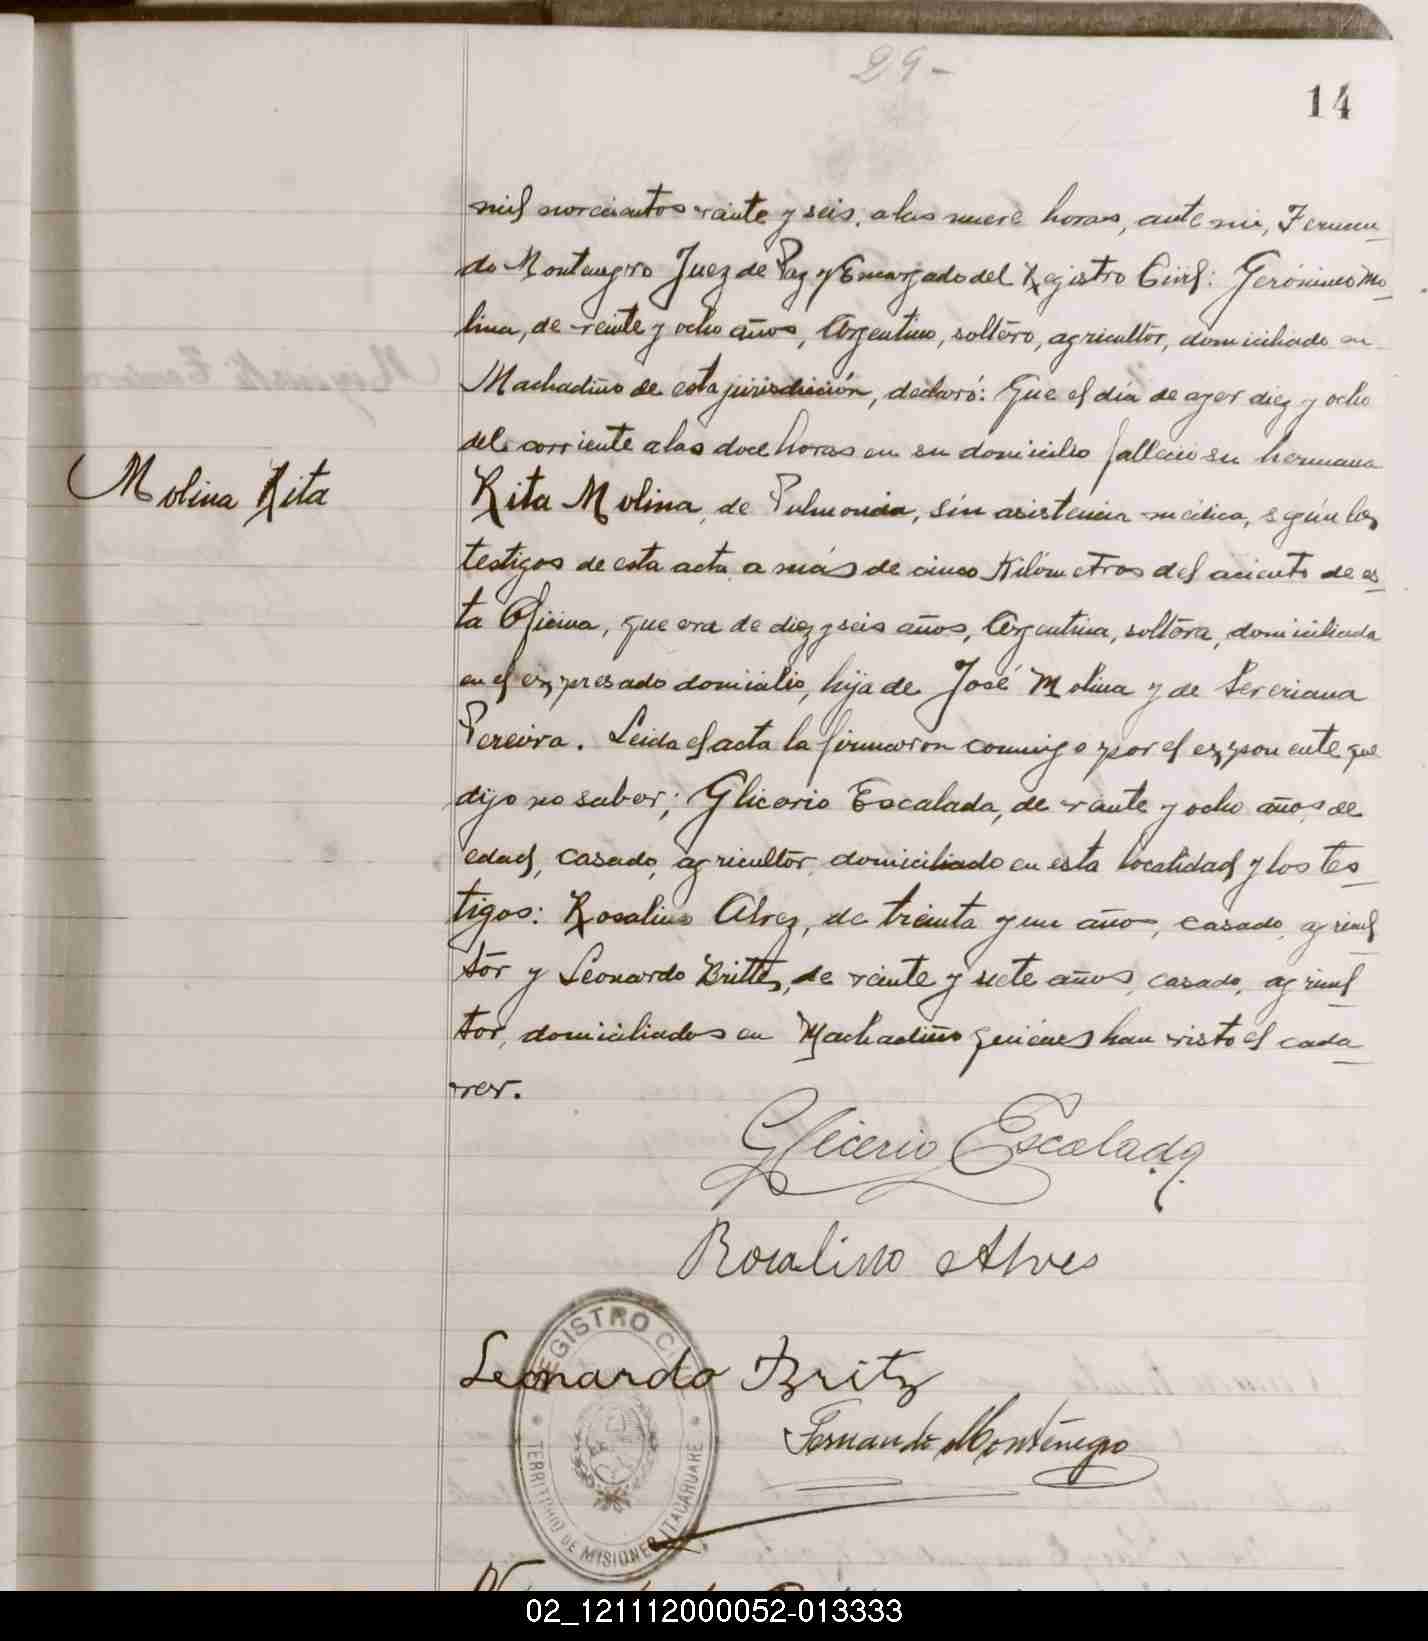 29-
14
mil novecientos veinte y seis, a las nueve horas, ante mi, Fernan_
do Montenegro Juez de Paz y Encargado del Registro Civil: Gerónimo Mo_
lina, de veinte y ocho años, Argentino, soltero, agricultor, domiciliado en
Machadiño de esta jurisdicción, declaró: Que el día de ayer diez y ocho
del corriente a las doce horas en su domicilio falleció su hermana
Molina Rita
Rita Molina, de Pulmonía, sin asistencia médica, según los
testigos de esta acta a más de cinco Kilómetros del aciento de es_
ta Oficina, que era de diez y seis años, Argentina, soltera, domiciliada
en el expresado domicilio, hija de José Molina y de Severiana
Pereira. Leida el acta la firmaron conmigo por el exponente que
dijo no saber; Glicerio Escalada, de veinte y ocho años de
edad, casado, agricultor domiciliado en esta localidad y los tes_
tigos: Rosalino Alvez, de treinta y un años, casado, agricul
tor y Leonardo Brittz, de veinte y siete años, casado, agricul_
tor, domiciliados en Machadiño quienes han visto el cada_
ver.
Glicerio Escalada
Rosalino Alves
Leonardo Britz
Fernando Montenegro
REGISTRO CIVIL
TERRITORIO DE MISIONES ITACARUARE
02_121112000052-013333